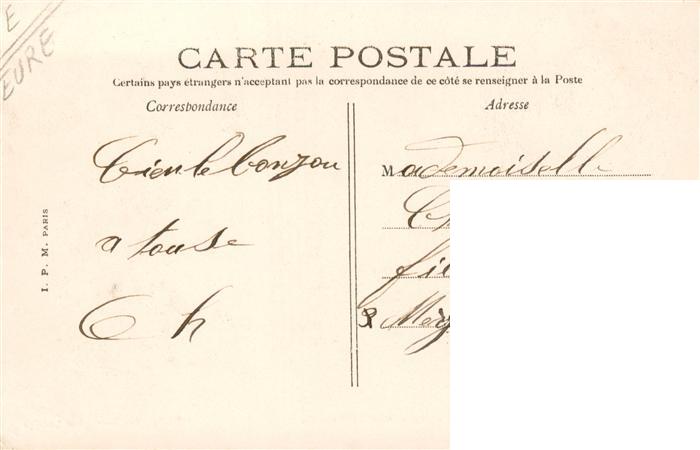 E
EURE
CARTE POSTALE
Certains pays étrangers n'acceptant pas la correspondance de ce côté se renseigner à la Poste
Correspondance
Adresse
bien le bonzou
a touse
C h
Mademoiselle
I. P. M. PARIS